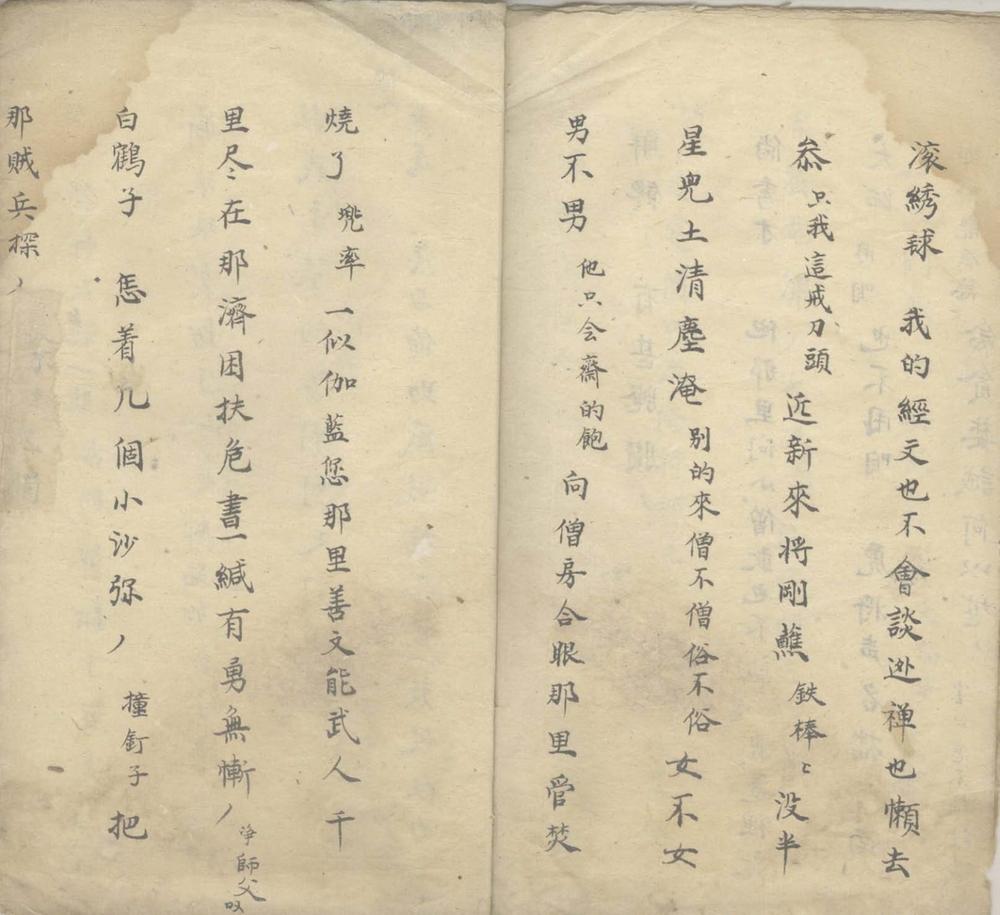 滚綉球 我的經文也不會談逃禅也懶去
叅只我這戒刀頭近新來将剛蘸鉄棒〻没半
星兜土清塵淹别的來僧不僧俗不俗女不女
男不男他只会齋的飽向僧房合眼那里管焚
燒了兠率一似伽藍您那里善文能武人千
里尽在那濟困扶危書一緘有勇無慚ノ浄師父収
白鶴子 怎着几個小沙弥ノ撞釘子把
那贼兵探ノ